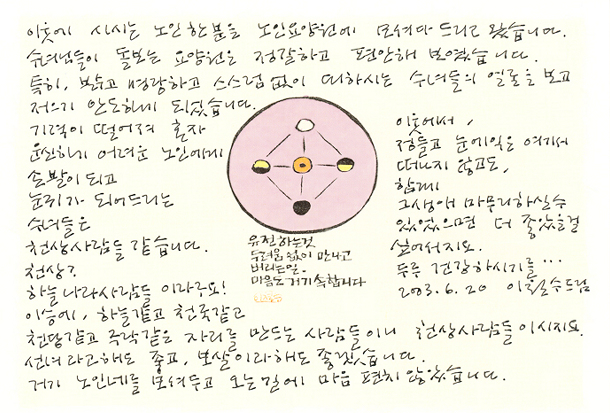 이웃에 사시는 노인 한 분을 노인요양원에 모셔다 드리고 왔습니다.
수녀님들이 돌보는 요양원은 정갈하고 편안해 보였습니다.
특히, 밝고 명랑하고 스스럼 없이 대하시는 수녀들의 얼굴을 보고
저으기 안도하게 되었습니다.
기력이 떨어져 혼자
운신하기 어려운 노인에게
손발이 되고
눈귀가 되어드리는
수녀들은
천상사람들 같습니다.
천상?
하늘나라사람들 이라구요!
이승에, 하늘같고 천국같고
천당같고 극락같은 자리를 만드는 사람들이니 천상사람들이시지요.
선녀라고해도 좋고, 보살이라해도 좋겠습니다.
거기 노인네를 모셔두고 오는길에 마음 편치 않았습니다.
이웃에서,
정들고 눈에익은 여기서
떠나지 않고도,
함께
그생애 마무리하실수
있었으면 더 좋았을걸
싶어서지요.
두루 건강하시기를…
2003.6.20 이철수드림
유전하는것
두려움없이 만나고
버리는일.
마음도 거기 속합니다